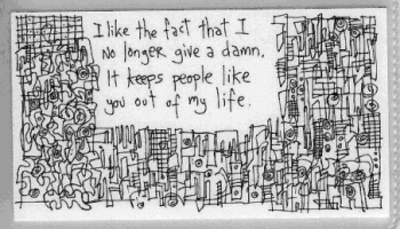 I like the fact that I
no longer give a damn.
It keeps people like
you out of my life.